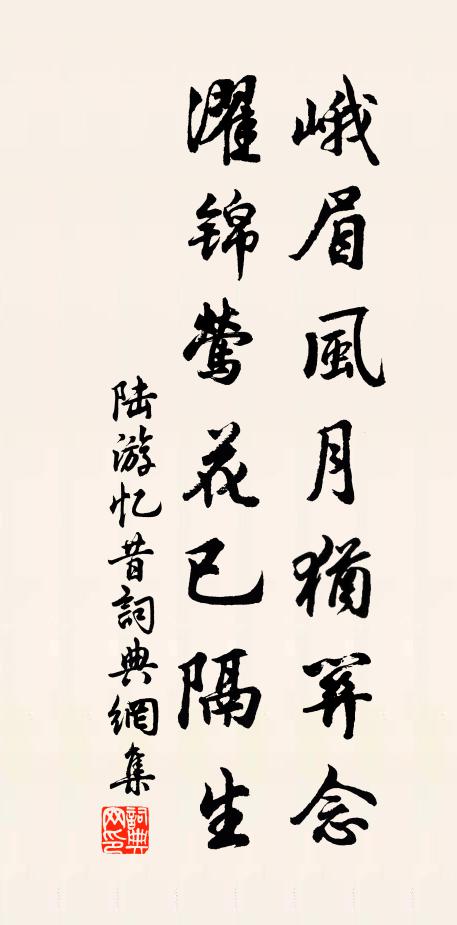 峨眉風月猶關念
濯錦鶯花已隔生
陆游忆昔詞典網集
詞典網印